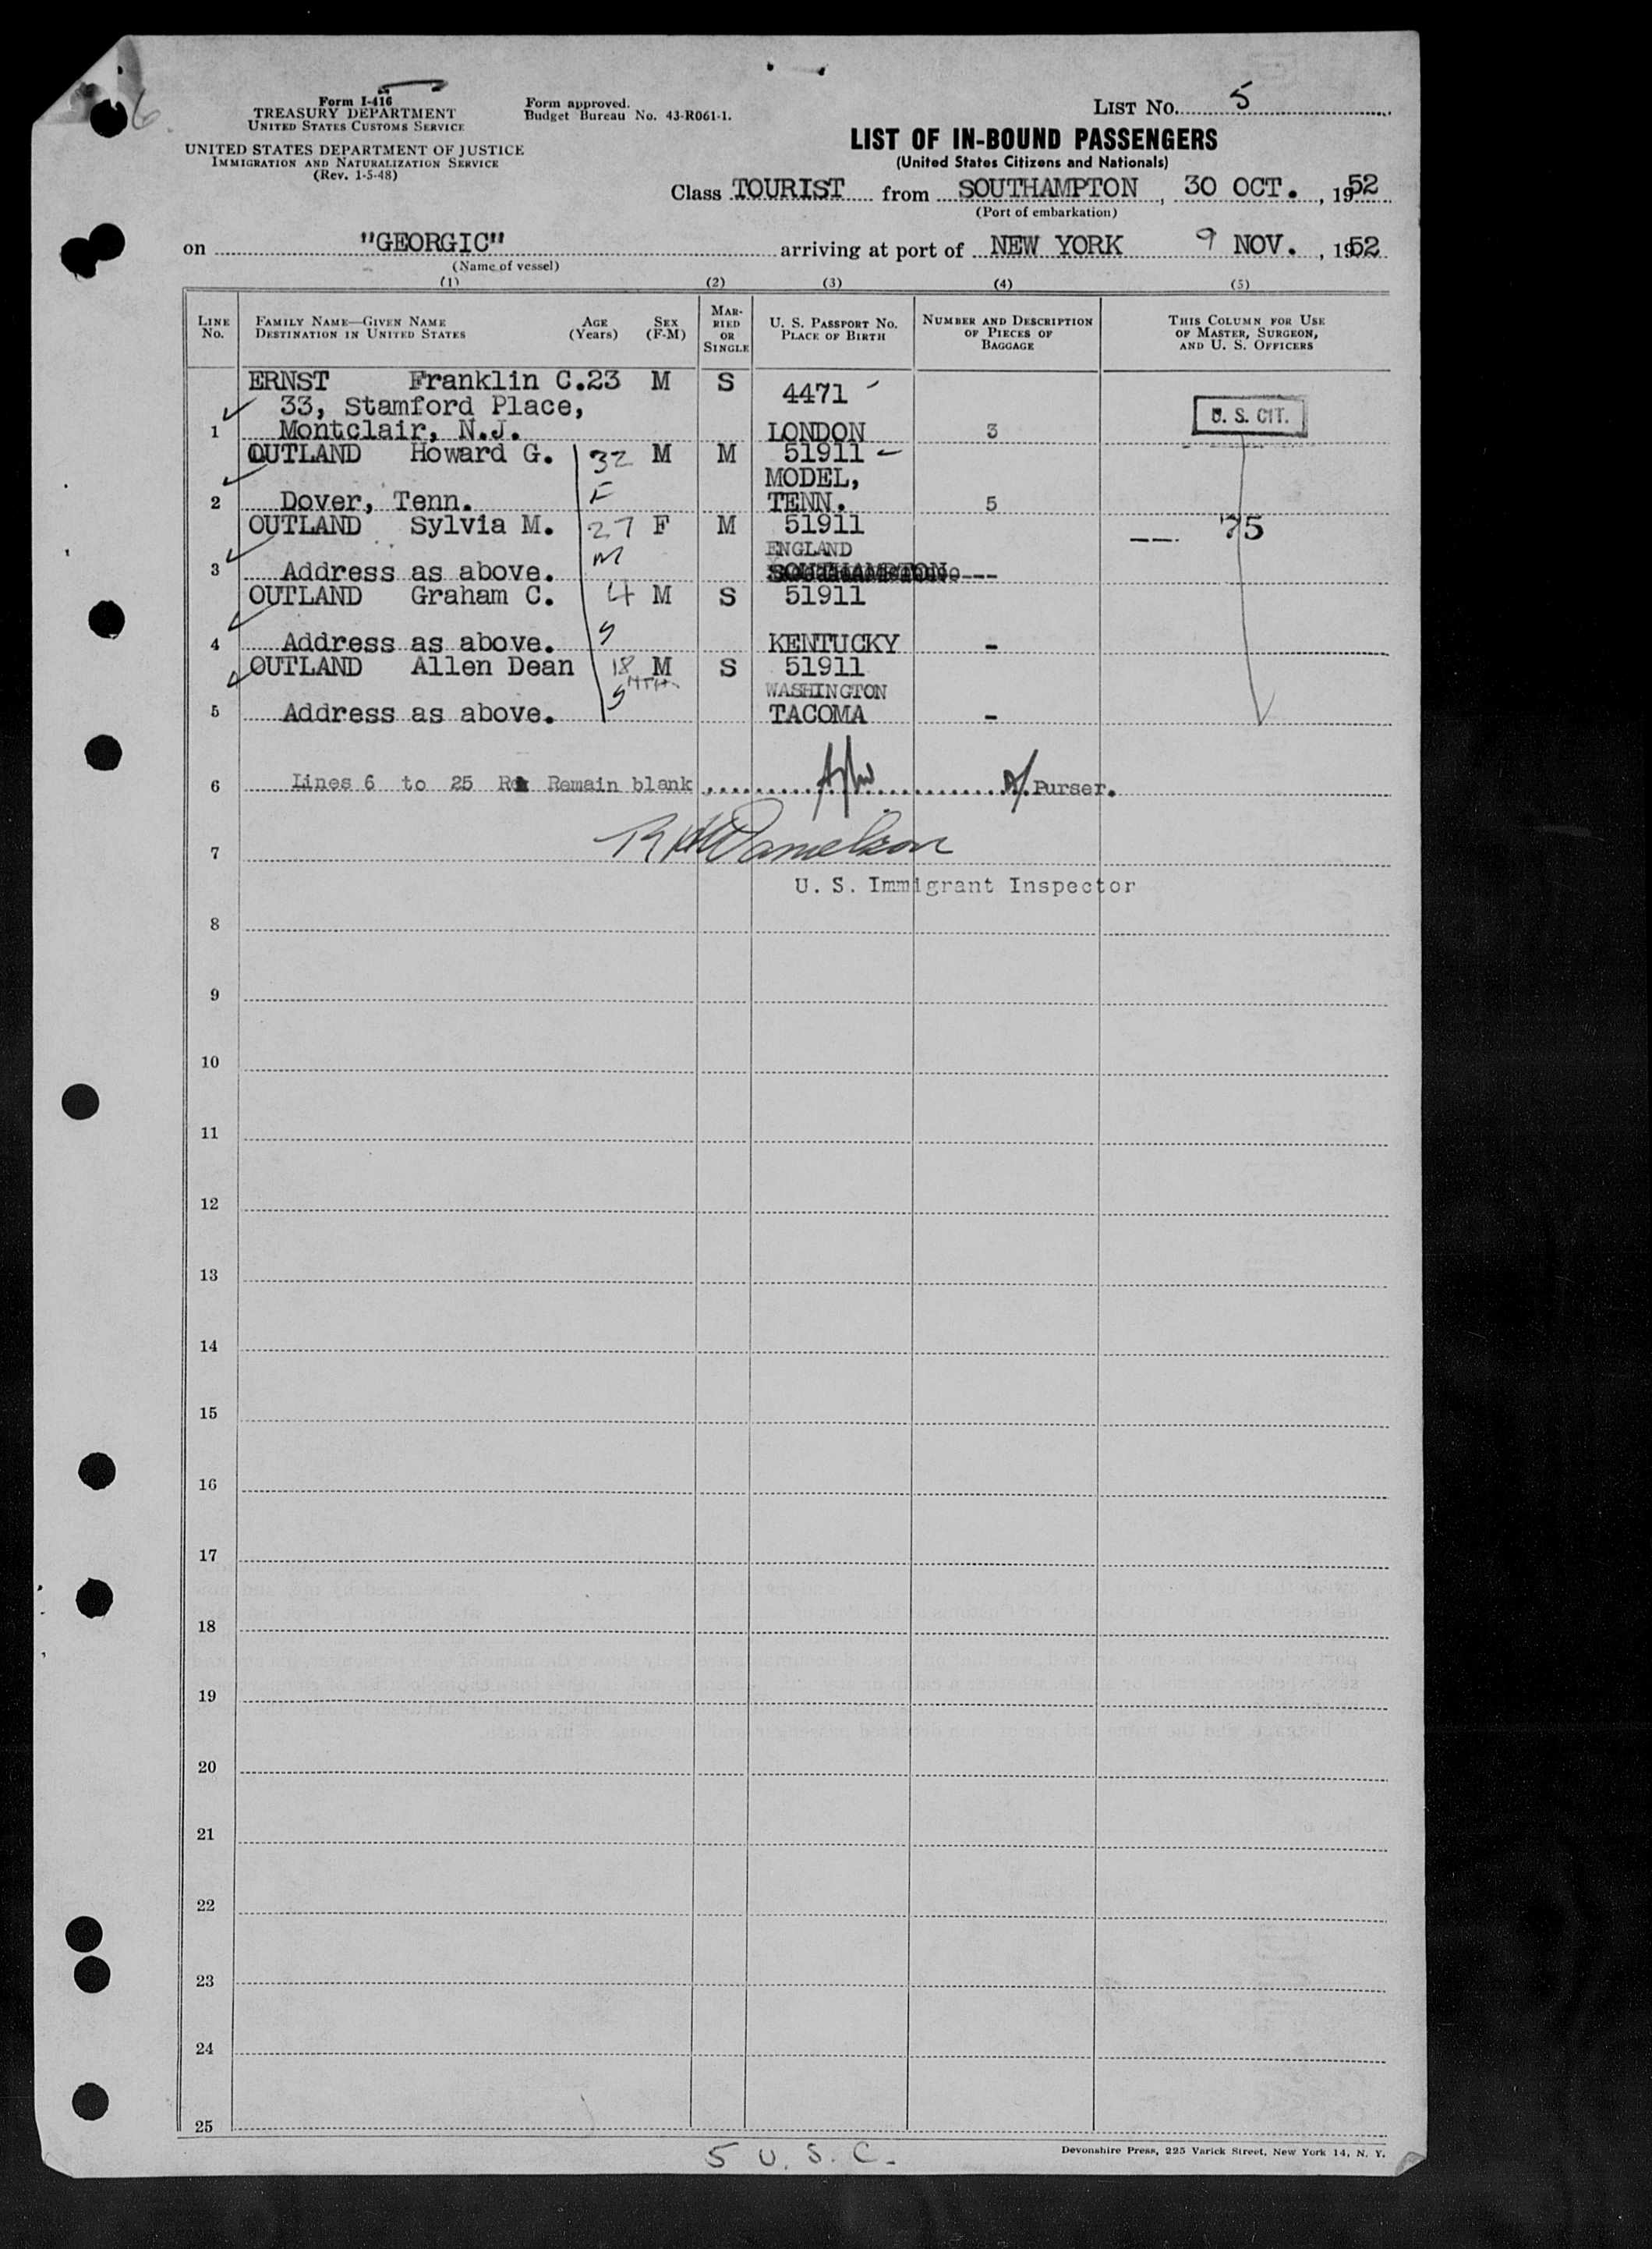 Form I-416
TREASURY DEPARTMENT
UNITED STATES CUSTOMS SERVICE
UNITED STATES DEPARTMENT OF JUSTICE
IMMIGRATION AND NATURALIZATION SERVICE
(Rev. 1-5-48)
Form approved.
Budget Bureau No. 43-R061-1.
LIST No. 5
LIST OF IN-BOUND PASSENGERS
(United States Citizens and Nationals)
Class TOURIST from SOUTHAMPTON, 30 OCT., 1952
(Port of embarkation)
on "GEORGIC" arriving at port of NEW YORK 9 NOV., 1952
(Name of vessel)
(1) (2) (3) (4) (5)
LINE No. FAMILY NAME—GIVEN NAME DESTINATION IN UNITED STATES AGE (Years) SEX (F-M) MARRIED OR SINGLE U. S. PASSPORT No. PLACE OF BIRTH NUMBER AND DESCRIPTION OF PIECES OF BAGGAGE THIS COLUMN FOR USE OF MASTER, SURGEON, AND U. S. OFFICERS
ERNST Franklin C. 23 M S 4471
33, Stamford Place,
1 Montclair, N.J. LONDON 3 U. S. CIT.
OUTLAND Howard G. 32 M M 51911
F MODEL,
2 Dover, Tenn. TENN. 5
OUTLAND Sylvia M. 27 F M 51911 75
M ENGLAND
3 Address as above. SOUTHAMPTON ---
OUTLAND Graham C. 4 M S 51911
S
4 Address as above. KENTUCKY -
OUTLAND Allen Dean 18 MTH M S 51911
S WASHINGTON
5 Address as above. TACOMA -
6 Lines 6 to 25 Remain blank Purser.
7 Danielson
U. S. Immigrant Inspector
8
9
10
11
12
13
14
15
16
17
18
19
20
21
22
23
24
25
5 U. S. C.
Devonshire Press, 225 Varick Street, New York 14, N. Y.